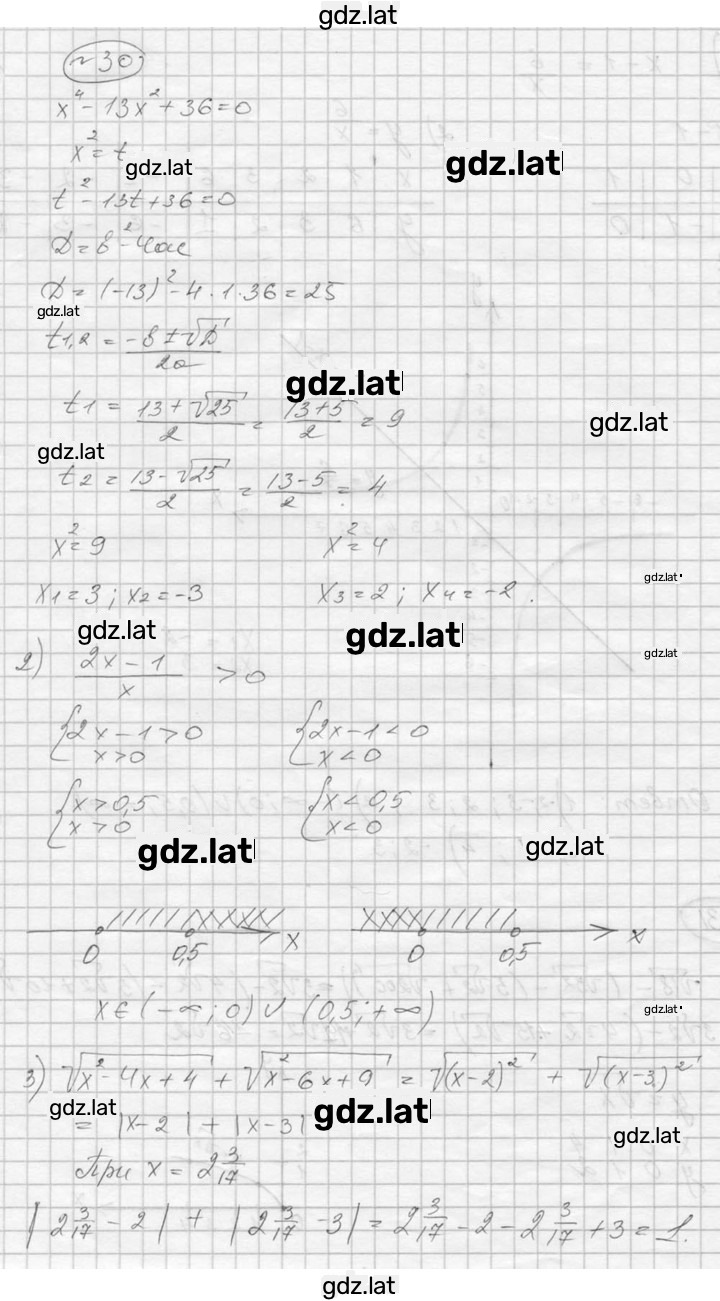 gdz.lat
№30
x⁴ - 13x² + 36 = 0
x² = t
gdz.lat
gdz.lat
t² - 13t + 36 = 0
D = b² - 4ac
D = (-13)² - 4 · 1 · 36 = 25
gdz.lat
t1,2 = (-b ± √D) / 2a
gdz.lat
t1 = (13 + √25) / 2 = (13 + 5) / 2 = 9
gdz.lat
gdz.lat
t2 = (13 - √25) / 2 = (13 - 5) / 2 = 4
x² = 9 x² = 4
x1 = 3; x2 = -3 x3 = 2; x4 = -2.
gdz.lat
gdz.lat
gdz.lat
gdz.lat
2) (2x - 1) / x > 0
{2x - 1 > 0 {2x - 1 < 0
x > 0 x < 0
{x > 0,5 {x < 0,5
x > 0 x < 0
gdz.lat
gdz.lat
0 0,5 x 0 0,5 x
x ∈ (-∞; 0) ∪ (0,5; +∞)
gdz.lat
3) √(x² - 4x + 4) + √(x² - 6x + 9) = √(x-2)² + √(x-3)²
gdz.lat
= |x - 2| + |x - 3|
gdz.lat
gdz.lat
При x = 2 3/17
|2 3/17 - 2| + |2 3/17 - 3| = 2 3/17 - 2 - 2 3/17 + 3 = 1.
gdz.lat